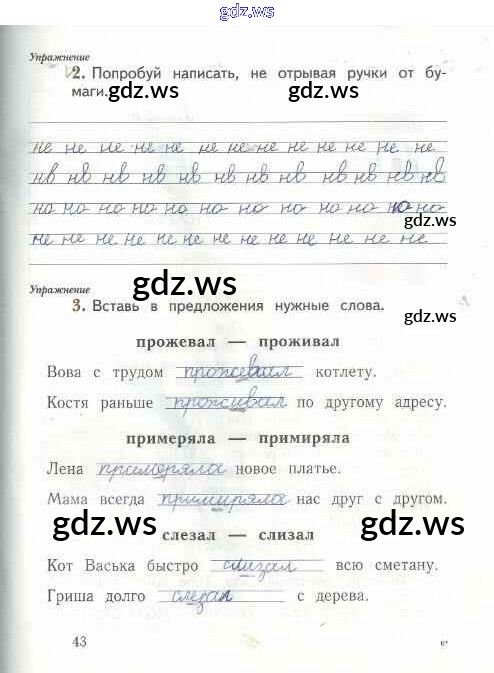 gdz.ws
Упражнение
2. Попробуй написать, не отрывая ручки от бу-
маги.
gdz.ws gdz.ws
не не не не не не не не не не не не не
нв нв нв нв нв нв нв нв нв нв нв нв
но но но но но но но но но но но но
gdz.ws
не не не не не не не не не не не не не
gdz.ws
Упражнение
3. Вставь в предложения нужные слова.
gdz.ws
прожевал — проживал
Вова с трудом прожевал котлету.
Костя раньше проживал по другому адресу.
примеряла — примиряла
Лена примеряла новое платье.
Мама всегда примиряла нас друг с другом.
gdz.ws gdz.ws
слезал — слизал
Кот Васька быстро слизал всю сметану.
Гриша долго слезал с дерева.
43 6*
gdz.ws